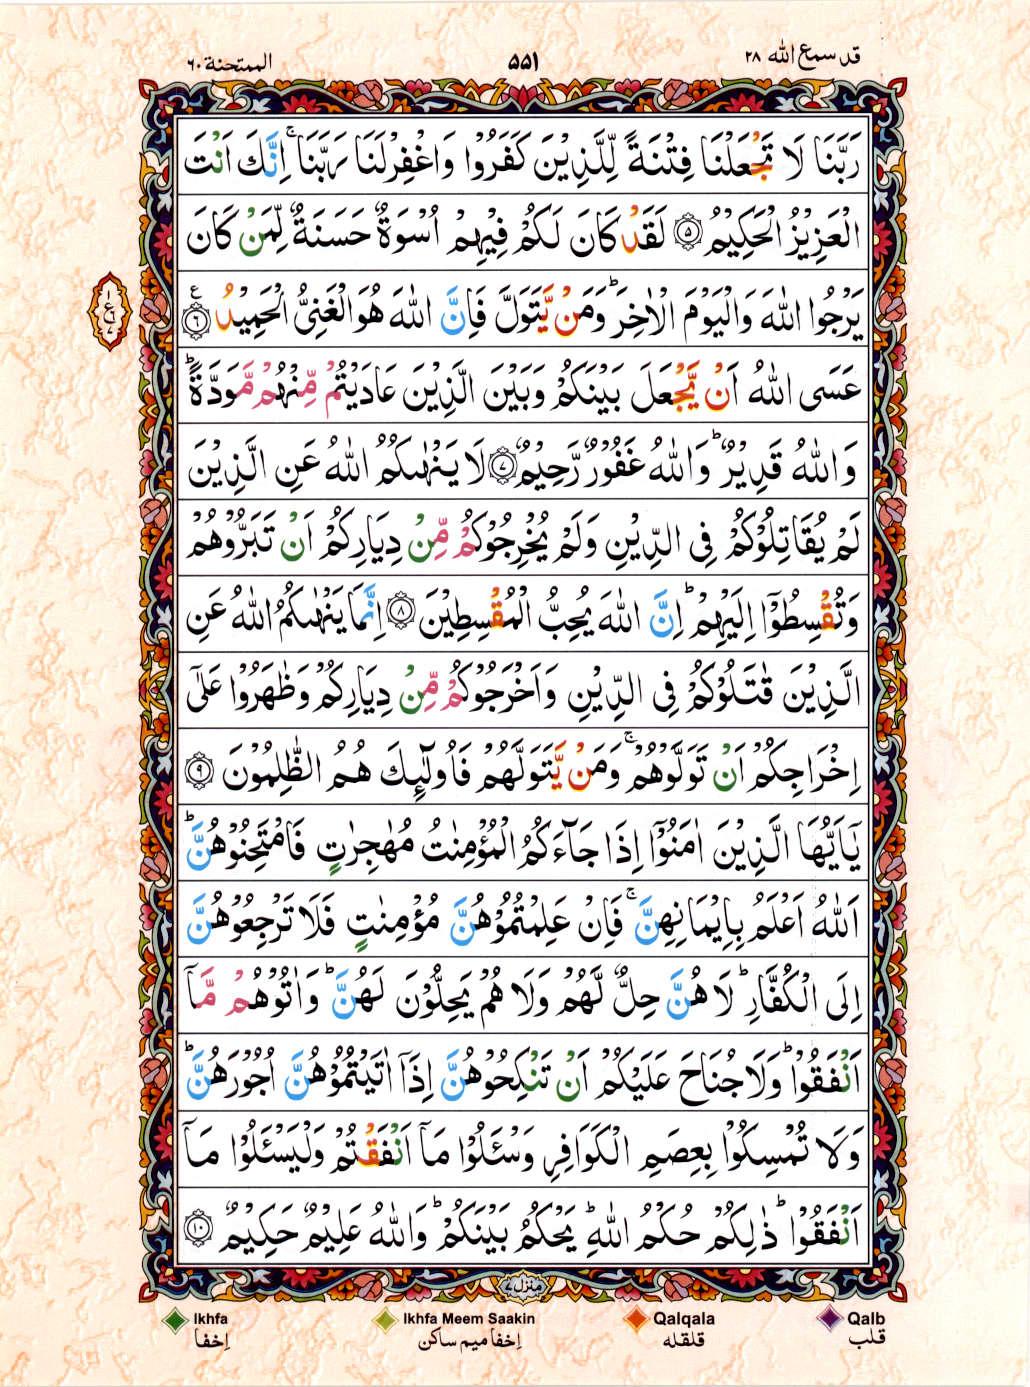 قد سمع الله ۲۸
۵۵۱
الممتحنة ۶۰
رَبَّنَا لَا تَجْعَلْنَا فِتْنَةً لِّلَّذِيْنَ كَفَرُوْا وَاغْفِرْلَنَا رَبَّنَا ۚ اِنَّكَ اَنْتَ
الْعَزِيْزُ الْحَكِيْمُ ۝۵ لَقَدْ كَانَ لَكُمْ فِيْهِمْ اُسْوَةٌ حَسَنَةٌ لِّمَنْ كَانَ
يَرْجُوا اللّٰهَ وَالْيَوْمَ الْاٰخِرَ ؕ وَمَنْ يَّتَوَلَّ فَاِنَّ اللّٰهَ هُوَ الْغَنِىُّ الْحَمِيْدُ ۝۶ ع
عَسَى اللّٰهُ اَنْ يَّجْعَلَ بَيْنَكُمْ وَبَيْنَ الَّذِيْنَ عَادَيْتُمْ مِّنْهُمْ مَّوَدَّةً ؕ
وَاللّٰهُ قَدِيْرٌ ؕ وَاللّٰهُ غَفُوْرٌ رَّحِيْمٌ ۝۷ لَا يَنْهٰىكُمُ اللّٰهُ عَنِ الَّذِيْنَ
لَمْ يُقَاتِلُوْكُمْ فِى الدِّيْنِ وَلَمْ يُخْرِجُوْكُمْ مِّنْ دِيَارِكُمْ اَنْ تَبَرُّوْهُمْ
وَتُقْسِطُوْۤا اِلَيْهِمْ ؕ اِنَّ اللّٰهَ يُحِبُّ الْمُقْسِطِيْنَ ۝۸ اِنَّمَا يَنْهٰىكُمُ اللّٰهُ عَنِ
الَّذِيْنَ قٰتَلُوْكُمْ فِى الدِّيْنِ وَاَخْرَجُوْكُمْ مِّنْ دِيَارِكُمْ وَظٰهَرُوْا عَلٰۤى
اِخْرَاجِكُمْ اَنْ تَوَلَّوْهُمْ ۚ وَمَنْ يَّتَوَلَّهُمْ فَاُولٰٓئِكَ هُمُ الظّٰلِمُوْنَ ۝۹
يٰۤاَيُّهَا الَّذِيْنَ اٰمَنُوْۤا اِذَا جَآءَكُمُ الْمُؤْمِنٰتُ مُهٰجِرٰتٍ فَامْتَحِنُوْهُنَّ ؕ
اَللّٰهُ اَعْلَمُ بِاِيْمَانِهِنَّ ۚ فَاِنْ عَلِمْتُمُوْهُنَّ مُؤْمِنٰتٍ فَلَا تَرْجِعُوْهُنَّ
اِلَى الْكُفَّارِ ؕ لَا هُنَّ حِلٌّ لَّهُمْ وَلَا هُمْ يَحِلُّوْنَ لَهُنَّ ؕ وَاٰتُوْهُمْ مَّاۤ
اَنْفَقُوْا ؕ وَلَا جُنَاحَ عَلَيْكُمْ اَنْ تَنْكِحُوْهُنَّ اِذَاۤ اٰتَيْتُمُوْهُنَّ اُجُوْرَهُنَّ ؕ
وَلَا تُمْسِكُوْا بِعِصَمِ الْكَوَافِرِ وَسْـَٔلُوْا مَاۤ اَنْفَقْتُمْ وَلْيَسْـَٔلُوْا مَاۤ
اَنْفَقُوْا ؕ ذٰلِكُمْ حُكْمُ اللّٰهِ ؕ يَحْكُمُ بَيْنَكُمْ ؕ وَاللّٰهُ عَلِيْمٌ حَكِيْمٌ ۝۱۰
منزل ۷
Ikhfa
اِخفا
Ikhfa Meem Saakin
اِخفا میم ساکن
Qalqala
قلقله
Qalb
قلب